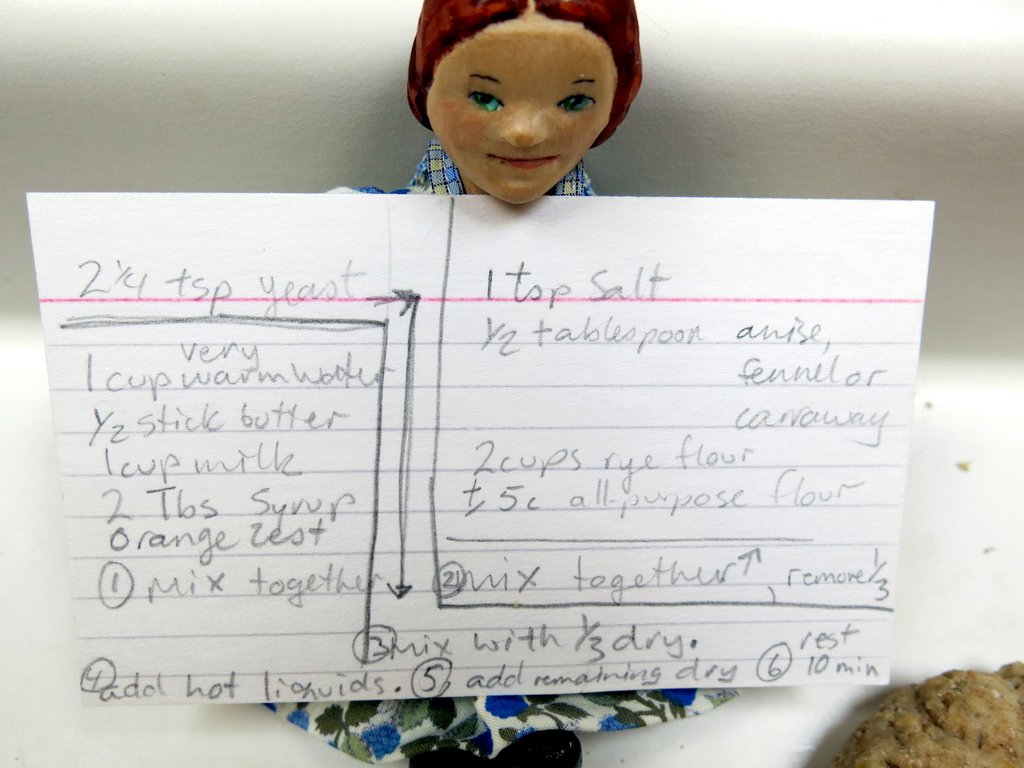 2 1/4 tsp yeast
very
1 cup warm water
1/2 stick butter
1 cup milk
2 Tbs Syrup
orange zest
① mix together
1 tsp Salt
1/2 tablespoon anise,
fennel or
carraway
2 cups rye flour
± 5c all-purpose flour
② mix together ↑, remove 1/3
③ mix with 1/3 dry.
④ add hot liquids. ⑤ add remaining dry ⑥ rest
10 min